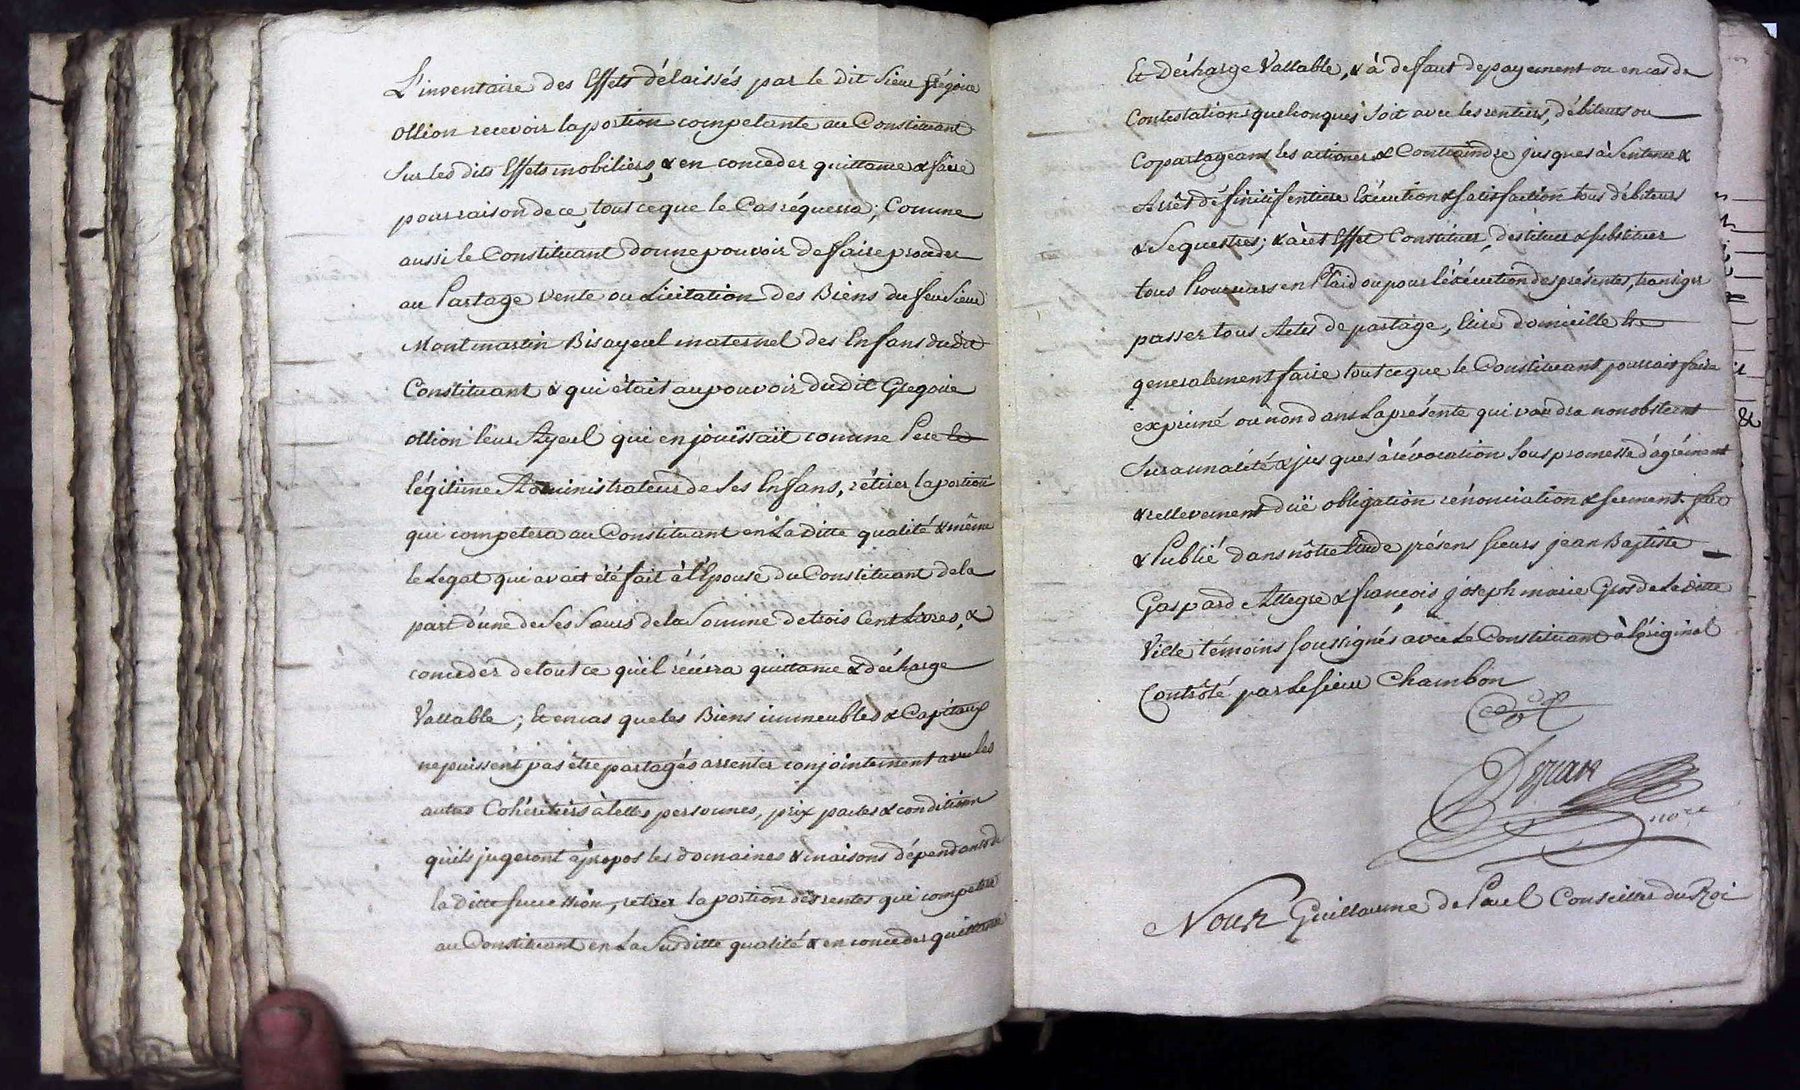 L'inventaire des Effets délaissés par le Dit Sieur grégoire
ollion recevoir la portion compelante au Constituant
Sur les dits Effets mobiliers, & en conceder quittance & faire
pour raison de ce, tout ce que le Cas réquerra; Comme
aussi le Constituant donne pouvoir de faire proceder
au Partage vente ou Licitation des Biens du feu Sieur
Montmartin Bisayeul maternel des Enfans du dit
Constituant & qui était au pouvoir du dit Gregoire
ollion leur Ayeul qui en jouïssait comme Pere &
légitime Administrateur de ses Enfans, rétirer la portion
qui competera au Constituant en La Ditte qualité & même
le Legat qui avait été fait à l'Epouse du Constituant de la
part d'une de Ses Sœurs de la Somme de trois Cent Livres, &
conceder de tout ce qu'il récévra quittance & décharge
Vallable; Et en cas que les Biens immeubles & Capitaux
ne puissent pas être partagés arrenter conjointement avec les
autres Cohéritiers à telles personnes, prix pactes & condition
qu'ils jugeront àpropos les domaines & maisons dépendants de
la Ditte succession, retirer la portion des rentes qui competera
au Constituant en La Susditte qualité & en conceder quittance
Et Décharge Vallable, & à defaut de payement ou en cas de
Contestations quelconques soit avec les rentiers, débiteurs ou
Copartageans les actioner & Contraindre jusques à Sentence &
Arrêt définitif entiere Exécution & satisfaction tous débiteurs
& Sequestres; & à cet Effet Constituer, destituer & substituer
tous Procureurs en Plaid ou pour l'éxécution des présentes, transiger
passer tous Actes de partage, Elire domicille &
generalement faire tout ce que le Constituant pourrait faire
exprimé ou non dans La présente qui vaudra nonobstant
Surannalité & jusques à révocation sous promesse d'agrément
& rellevement düe obligation rénonciation & serment. fait
& Publié dans nôtre Etude présens sieurs jean Baptiste
Gaspard Allegre & françois joseph marie Gros de La ditte
Ville témoins soussignés avec Le Constituant à l'original
Contrôlé par Le sieur Chambon
nore
Nous Guillaume de Paul Conseiller du Roi